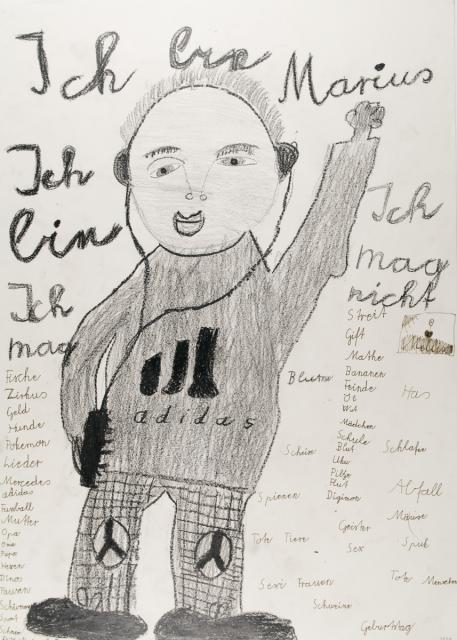 Ich bin Marius
Ich
bin
Ich
mag
Fische
Zirkus
Geld
Hunde
Pokemon
Lieder
Mercedes
adidas
Fussball
Mutter
Opa
Oma
Papa
Hexen
Dinos
Frauen
adidas
Ich
mag
nicht
Streit
Gift
Mathe
Bananen
Feinde
Wut
Mädchen
Schule
Blut
Uhu
Pilze
Digimon
Blumen
Spinnen
Tote Tiere
Sexi Frauen
Schweine
Geister
Sex
Has
Schlafen
Abfall
Mäuse
Spuk
Tote Menschen
Geburtstag